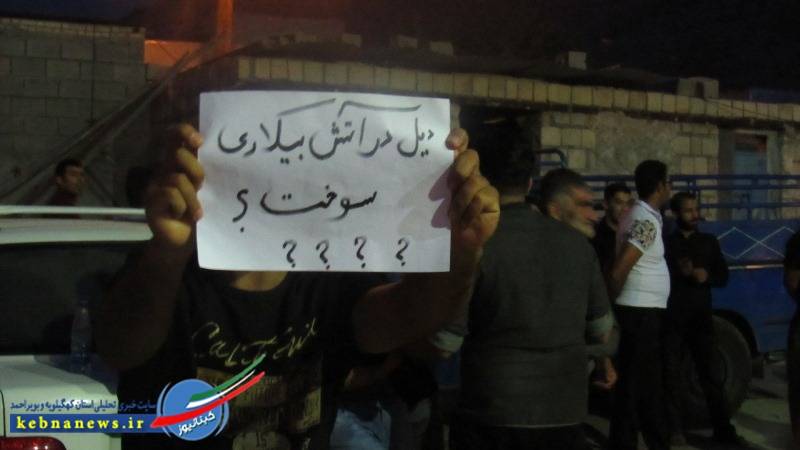 دیل در آتش بیکاری
سوخت ؟
؟ ؟ ؟ ؟
سایت خبری تحلیلی استان کهگیلویه و بویراحمد
kebnanews.ir
کبنانیوز